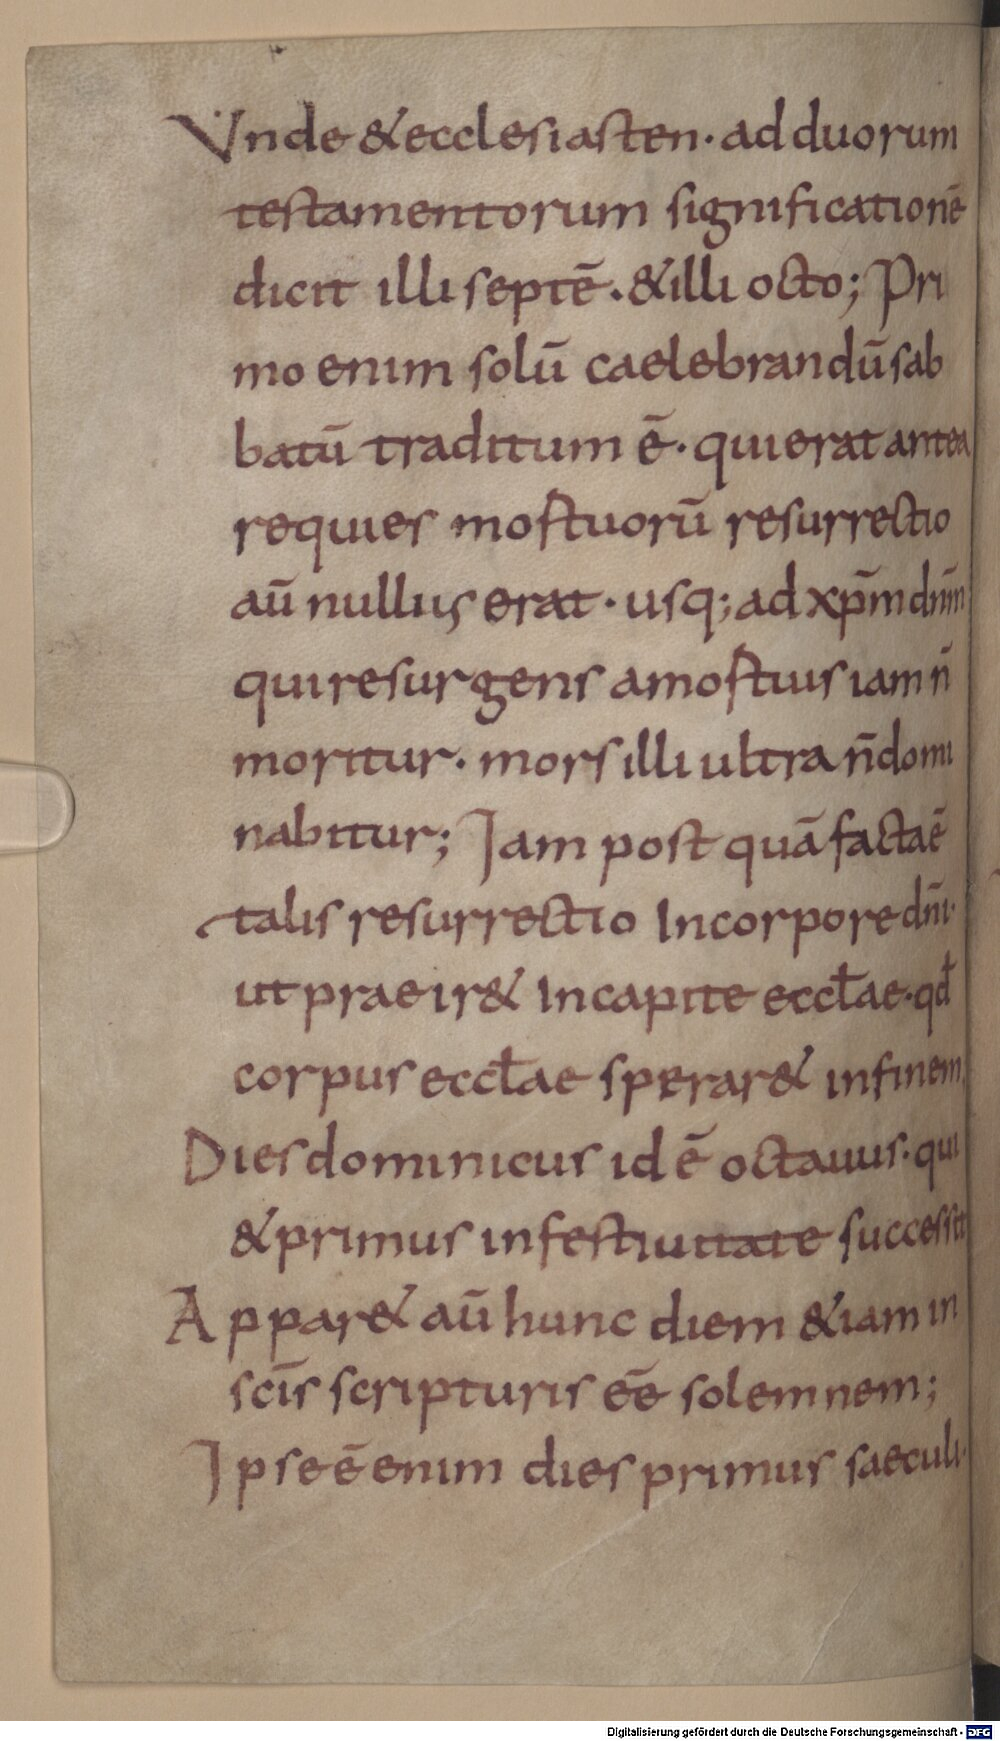 Vnde & ecclesiasten · ad duorum
testamentorum significationē
dicit illi septē · & illi octo; Pri
mo enim solū caelebrandū sab
batū traditum ē · qui erat antea
requies mortuorū resurrectio
aū nullius erat · usq; ad xp̄m dn̄m
qui resurgens a mortuis iam n̄
moritur · mors illi ultra n̄ domi
nabitur; Iam post quā facta ē
talis resurrectio In corpore dn̄i ·
ut praeir& In capite eccł̄ae · qd̄
corpus eccł̄ae sperar& in finem
Dies dominicus id ē octauus · qui
& primus in festiuitate successit
Appar& aū hunc diem &iam in
sc̄is scripturis eē solemnem;
Ipse ē enim dies primus saeculi ·
Digitalisierung gefördert durch die Deutsche Forschungsgemeinschaft - DFG